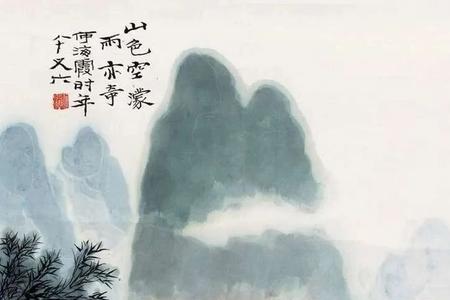 山色空濛
雨亦奇
何海霞时年
八十又六